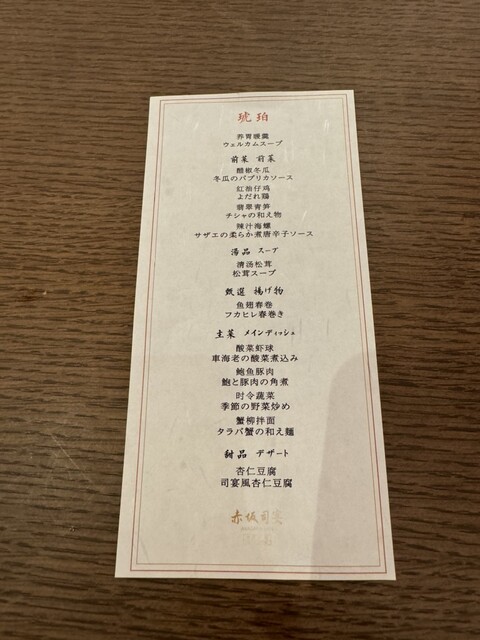 琥珀
养胃暖羹
ウェルカムスープ
前菜 前菜
醋椒冬瓜
冬瓜のパプリカソース
红油仔鸡
よだれ鶏
翡翠青笋
チシャの和え物
辣汁海螺
サザエの柔らか煮唐辛子ソース
湯品 スープ
清汤松茸
松茸スープ
甄選 揚げ物
鱼翅春卷
フカヒレ春巻き
主菜 メインディッシュ
酸菜虾球
車海老の酸菜煮込み
鲍鱼豚肉
鮑と豚肉の角煮
时令蔬菜
季節の野菜炒め
蟹柳拌面
タラバ蟹の和え麺
甜品 デザート
杏仁豆腐
司宴風杏仁豆腐
赤坂司宴